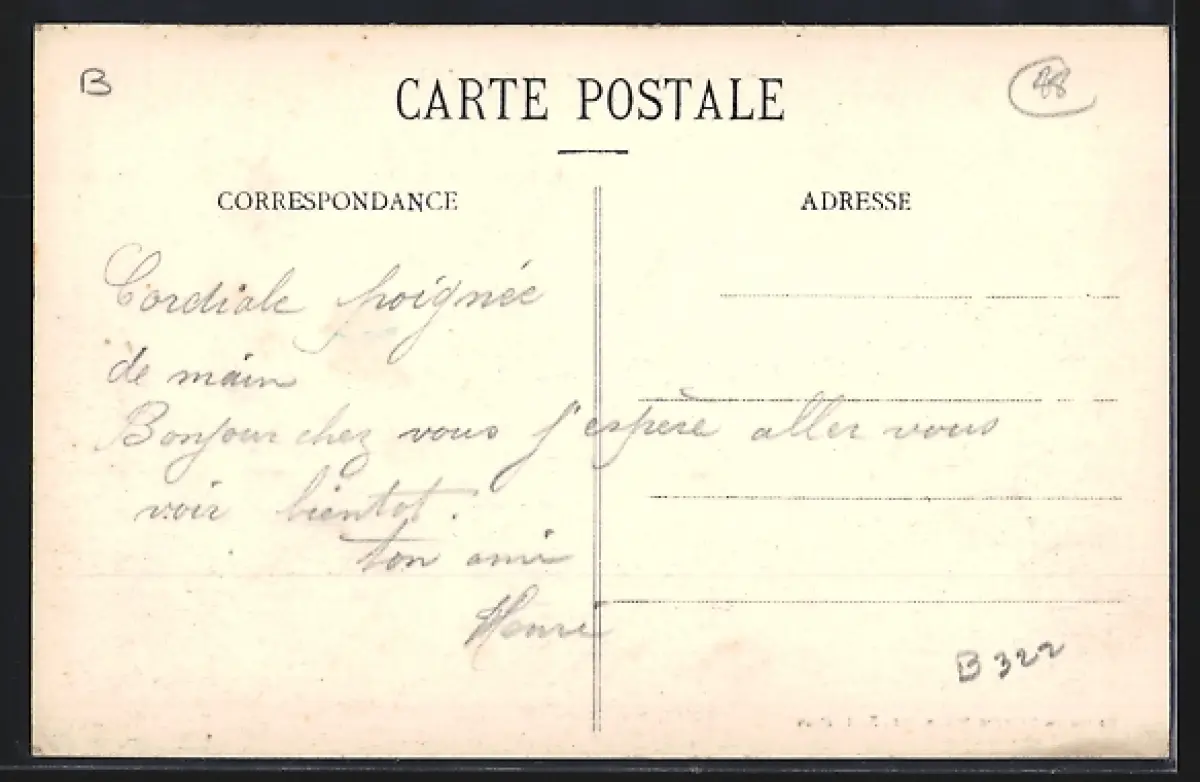 B
48
CARTE POSTALE
CORRESPONDANCE
ADRESSE
Cordiale poignée
de main
Bonjour chez vous j'espère aller vous
voir bientot.
ton ami
Henri
B 322